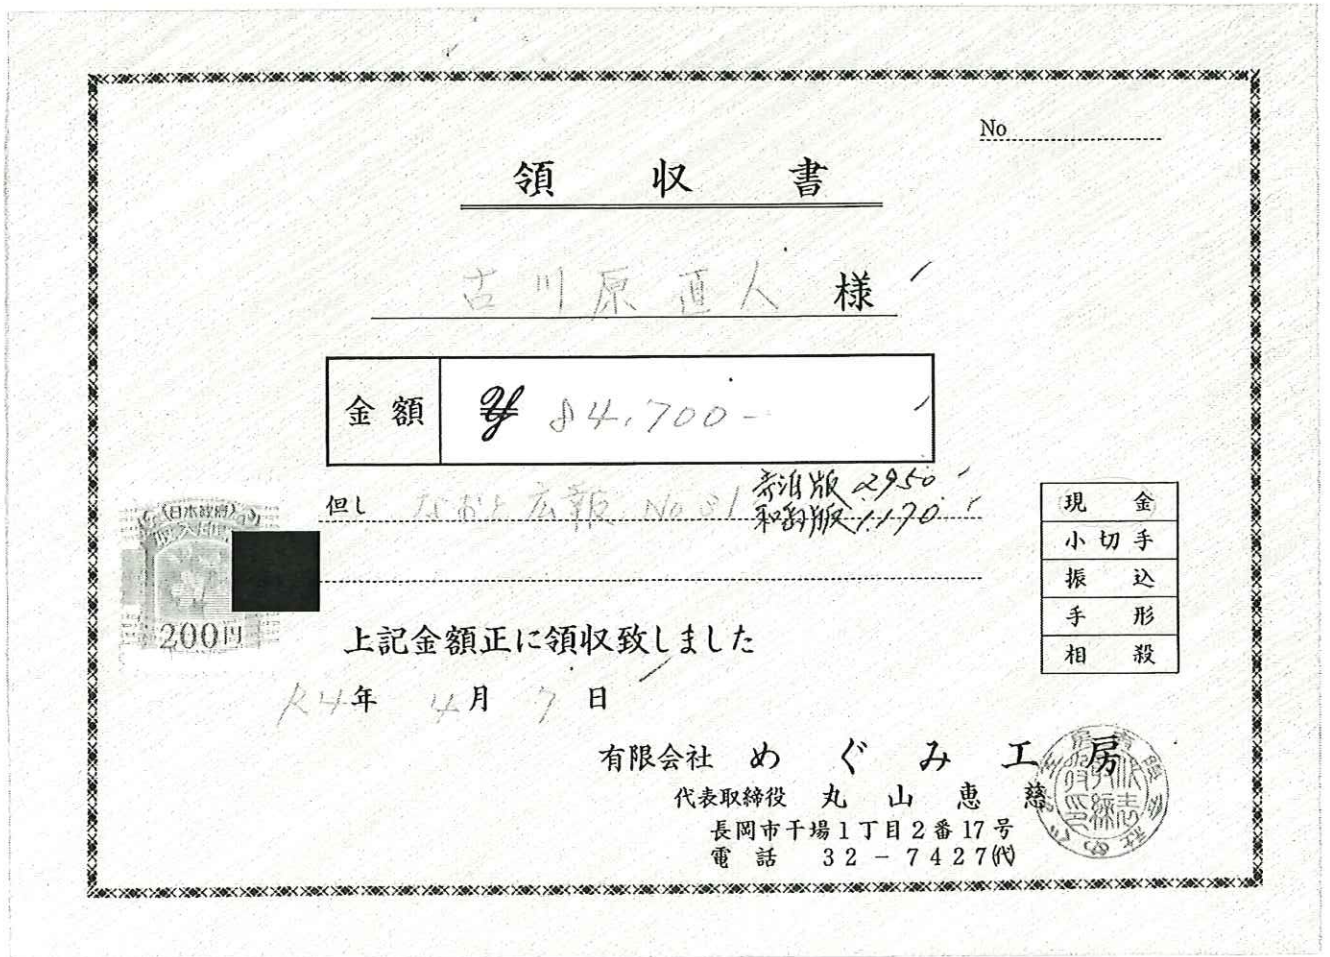 No
領収書
古川原直人 様
金額 ¥ 84,700-
但し なおと広報 No 31 赤沼版 2950
和島版 1,170
日本政府
収入印紙
200円
現金
小切手
振込
手形
相殺
上記金額正に領収致しました
R4年 4月 7日
有限会社 めぐみ工房
代表取締役 丸山恵慈
長岡市干場1丁目2番17号
電話 32-7427(代)